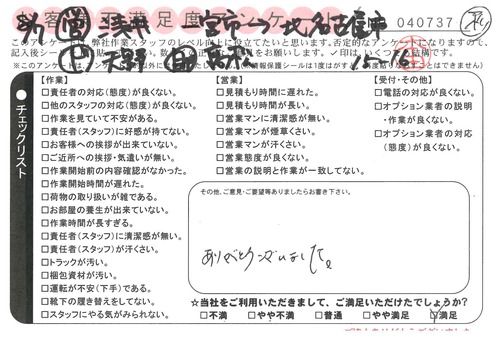 お客様満足度アンケート
040737
一宮市→北名古屋市
このアンケートは、弊社作業スタッフのレベル向上に役立てたいと思います。否定的なアンケートになりますので、
記入後シール
✓印は、いくつでも結構です。
※このアンケート
【作業】
□責任者の対応(態度)が良くない。
□他のスタッフの対応(態度)が良くない。
□作業を見ていて不安がある。
□責任者(スタッフ)に好感が持てない。
□お客様への挨拶が出来ていない。
□ご近所への挨拶・気遣いが無い。
□作業開始前の内容確認がなかった。
□作業開始時間が遅れた。
□荷物の取り扱いが雑である。
□お部屋の養生が出来ていない。
□作業時間が長すぎる。
□責任者(スタッフ)に清潔感が無い。
□責任者(スタッフ)が汗くさい。
□トラックが汚い。
□梱包資材が汚い。
□運転が不安(下手)である。
□靴下の履き替えをしてない。
□スタッフにやる気がみられない。
【営業】
□見積もり時間に遅れた。
□見積もり時間が長い。
□営業マンに清潔感が無い。
□営業マンが煙草くさい。
□営業マンが汗くさい。
□営業態度が良くない。
□営業の説明と作業が一致してない。
【受付・その他】
□電話の対応が良くない。
□オプション業者の説明
・作業が良くない。
□オプション業者の対応
(態度)が良くない。
●チェックリスト
その他、ご意見・ご要望等ありましたらお書き下さい。
ありがとうございました。
☆当社をご利用いただきまして、ご満足いただけたでしょうか?
□不満 □やや不満 □普通 □やや満足 ☑満足